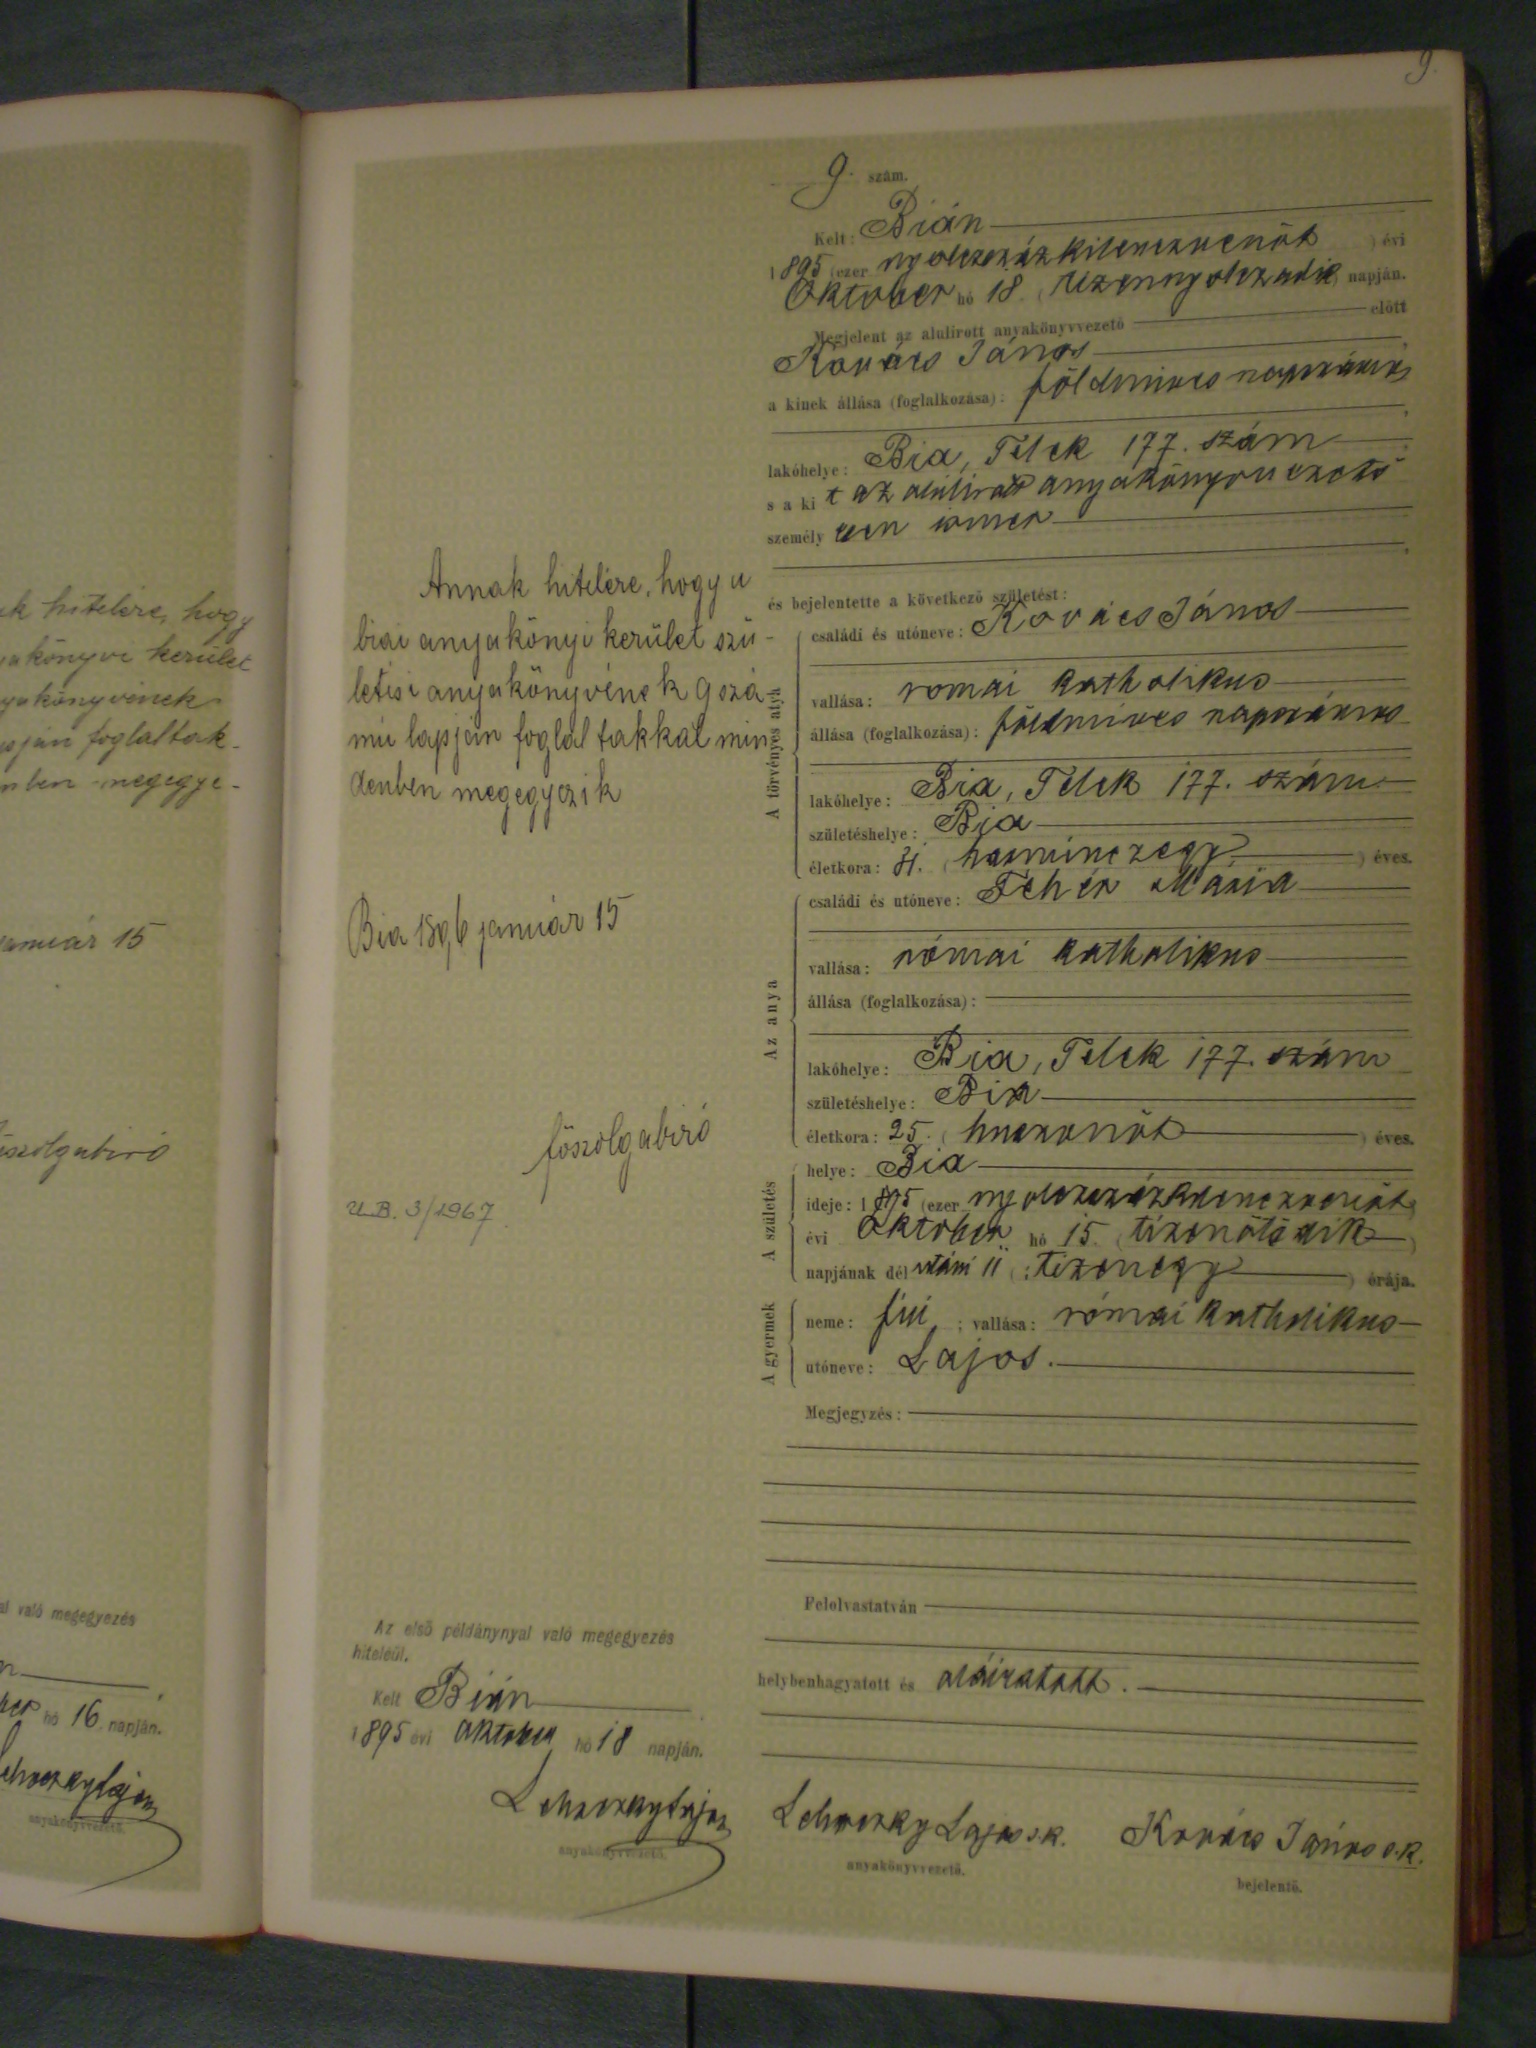 9.
9. szám.
Kelt: Bián
1895 (ezer nyolczszázkilenczvenöt ) évi
Oktober hó 18. (tizennyolczadik) napján.
Megjelent az alulirott anyakönyvvezető előtt
Kovács János
a kinek állása (foglalkozása): földmives napszámos
lakóhelye: Bia, Telek 177. szám
s a ki t az alulirott anyakönyvvezető
személy esen ismer
és bejelentette a következő születést:
A törvényes atya
családi és utóneve: Kovács János
vallása: romai katholikus
állása (foglalkozása): földmives napszámos
lakóhelye: Bia, Telek 177. szám
születéshelye: Bia
életkora: 31. ( harminczegy ) éves.
Az anya
családi és utóneve: Fehér Mária
vallása: római katholikus
állása (foglalkozása):
lakóhelye: Bia, Telek 177. szám
születéshelye: Bia
életkora: 25. ( huszonöt ) éves.
A születés
helye: Bia
ideje: 1895 (ezer nyolczszázkilenczvenöt)
évi Oktober hó 15. (tizenötödik)
napjának dél utáni 11 (tizenegy ) órája.
A gyermek
neme: fiú ; vallása: római katholikus
utóneve: Lajos.
Megjegyzés:
Felolvastatván
helybenhagyatott és aláiratott.
Lehoczky Lajos s.k. Kovács János s.k.
anyakönyvvezető. bejelentő.
Annak hitelére, hogy a
biai anyakönyi kerület szü-
letési anyakönyvének 9 szá
mú lapján foglaltakkal min
denben megegyezik
Bia 1896 január 15
főszolgabiró
U.B. 3/1967.
Az első példánynyal való megegyezés
hiteléül.
Kelt Bián
1895 évi oktober hó 18 napján.
Lehoczky Lajos
anyakönyvvezető.
k hitelére, hogy
akönyvi kerület
yakönyvének
pján foglaltak-
nben megegye-
január 15
főszolgabiró
al való megegyezés
n
ber hó 16 napján.
Lehoczky Lajos
anyakönyvvezető.